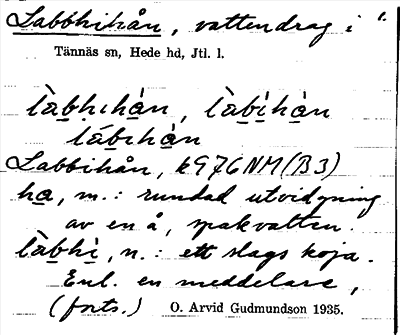 Labbhihån, vattendrag i
Tännäs sn, Hede hd, Jtl. l.
làbhihàn, làbíhàn
lábihàn
Labbihån, k976NM(B3)
ha, m.: rundad utvidgning
av en å, spakvatten.
làbhi, n.: ett slags koja.
Enl. en meddelare,
(forts.) O. Arvid Gudmundson 1935.